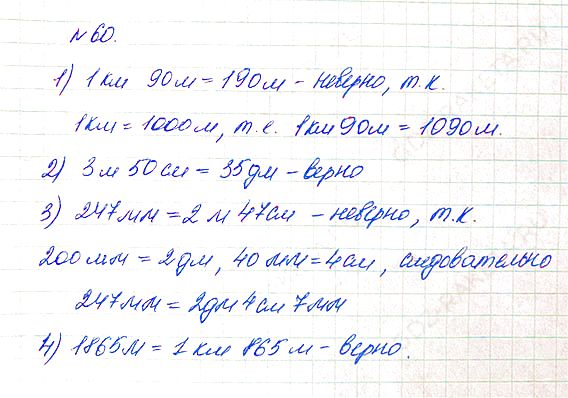 №60.
1) 1 км 90м = 190м - неверно, т.к.
1км = 1000м, т.е. 1км90м = 1090м.
2) 3м 50см = 35дм - верно
3) 247мм = 2м 47см - неверно, т.к.
200мм = 2дм, 40мм = 4см, следовательно
247мм = 2дм 4см 7мм
4) 1865м = 1 км 865м - верно.